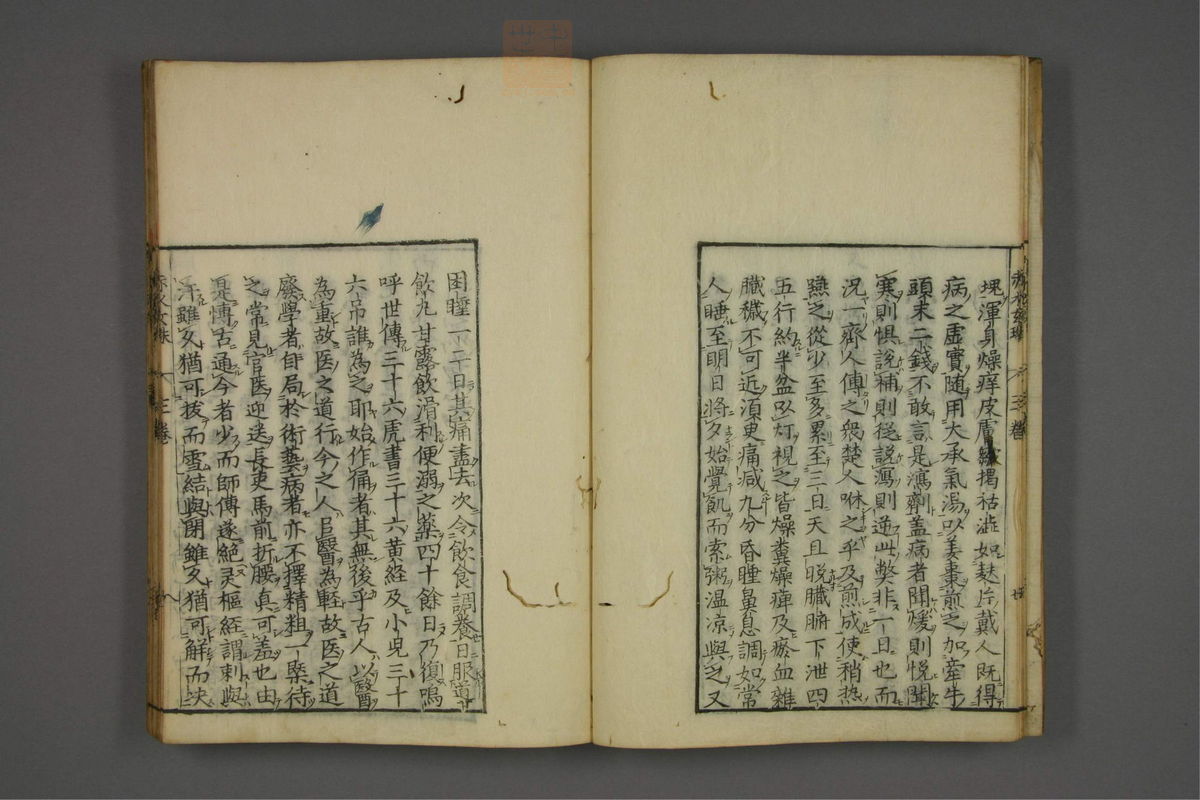 塊渾身燥痒皮膚皺揭枯澁如麩片戴人既得
病之虚實随用大承氣湯以姜棗煎之加牽牛
頭末二錢不敢言是瀉劑盖病者聞煖則悦聞
寒則惧說補則從說瀉則逆此弊非一日也而
况一齊人傅之衆楚人咻之乎及煎成使稍热
嚥之從少至多累至三日天且晩臓腑下泄四
五行約半盆以灯視之皆燥糞燥痺及瘀血雜
臓穢不可近湏臾痛减九分昏睡鼻息調如常
人睡至明日將夕始覺飢而索粥温凉與之又
困睡一二日其痛盡去次令飲食調養日服道
飲丸甘露飲滑利便溺之薬四十餘日乃復嗚
呼世傳三十六虎書三十六黄経及小児三十
六吊誰為之耶始作俑者其無後乎古人以醫
為重故医之道行今之人以醫為輕故医之道
廢學者自局於術藝病者亦不擇精粗一槩待
之常見官医迎送長吏馬前折腰真可羞也由
是博古通今者少而師傳遂絶灵樞経謂刺與
汗雖夊猶可拔而雪結與閉雖夊猶可解而决
三卷
三卷